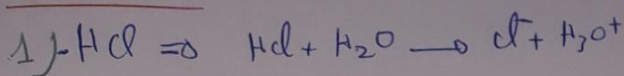 1)-HCl => HCl + H₂O → Cl⁻ + H₃O⁺